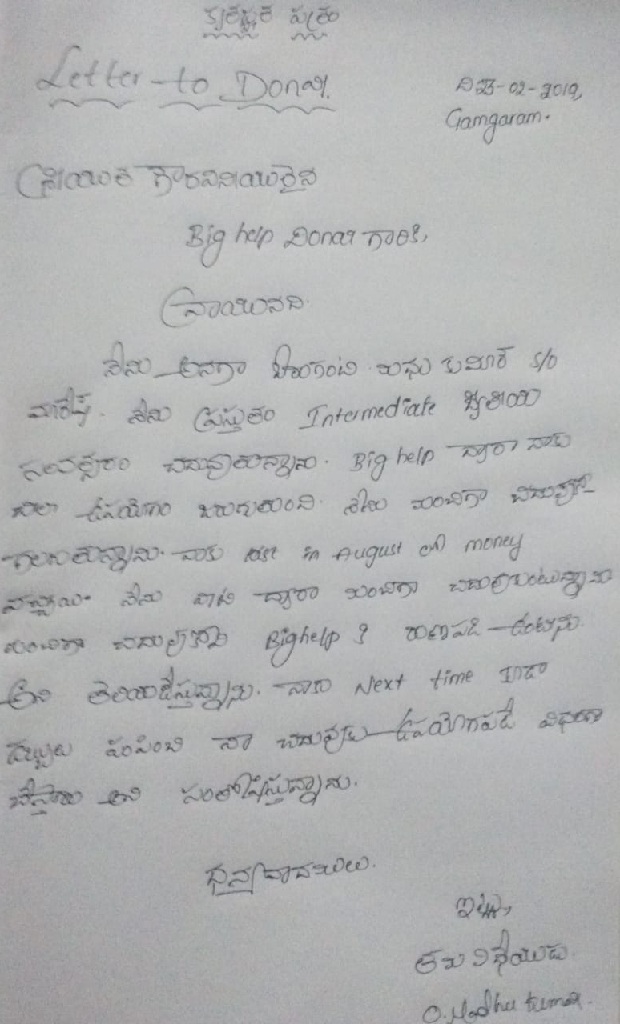 కృతజ్ఞత పత్రం
Letter to Donar.
ది 23-02-2019,
Gamgaram.
శ్రీయుత గౌరవనీయులైన
Big help Donar గారికి,
వ్రాయునది.
నేను అనగా మధు కుమార్ S/O
నేను ప్రస్తుతం Intermediate ద్వితీయ
సంవత్సరం చదువుతున్నాను. Big help ద్వారా నాకు
చాలా ఉపయోగం జరుగుతుంది. నేను మంచిగా చదువుకో-
గలుగుతున్నాను. నాకు last in August money
వచ్చాయి. నేను వాటి ద్వారా మంచిగా చదువుకుంటున్నాను
మంచిగా చదువుకొని Big help కి రుణపడి ఉంటాను.
అని తెలియజేస్తున్నాను. నాకు Next time కూడా
డబ్బులు పంపించి నా చదువుకు ఉపయోగపడే విధంగా
చేస్తారు అని సంతోషిస్తున్నాను.
ధన్యవాదములు.
ఇట్లు,
తమ విధేయుడు.
O. Madhu kumar.